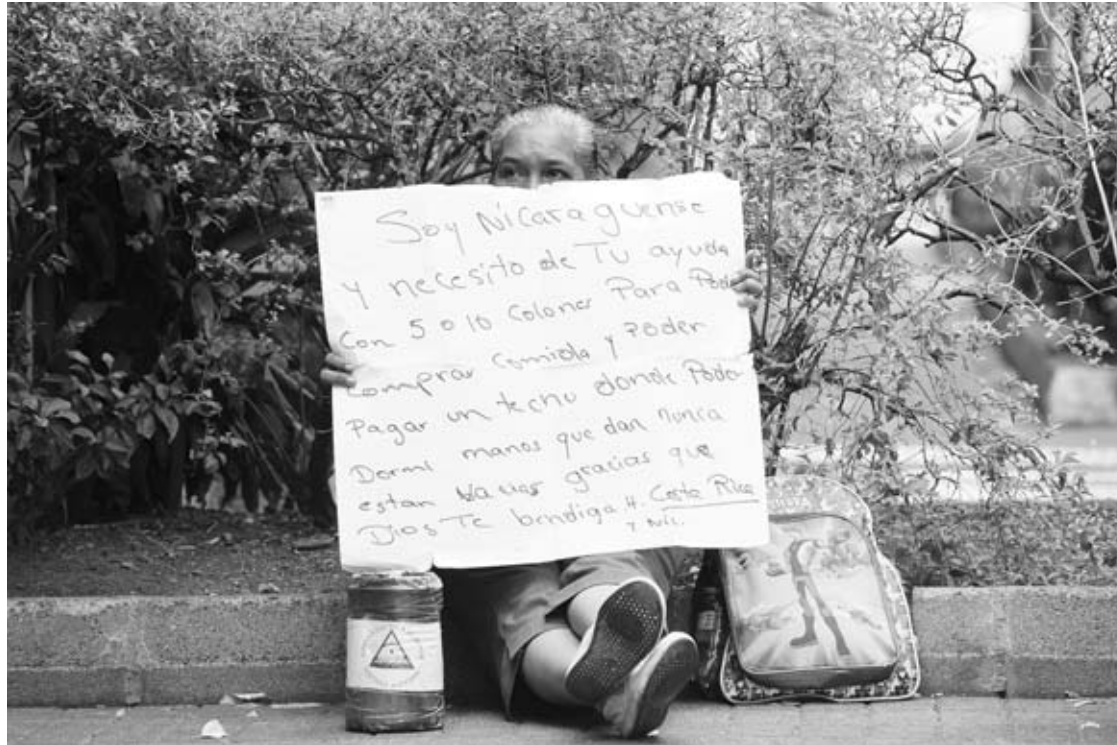 Soy Nicaraguense
y necesito de Tu ayuda
Con 5 o 10 Colones Para Pode
comprar Comida y Poder
Pagar un techo donde Poder
Dormi manos que dan nunca
estan Vacias gracias que
Dios Te bendiga H. Costa Rica
y Nic.